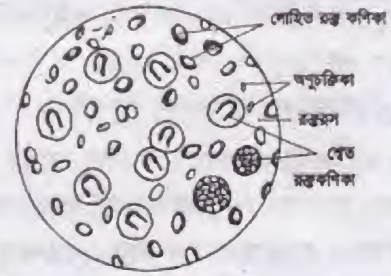 লোহিত রক্ত কণিকা
অণুচক্রিকা
রক্তরস
শ্বেত
রক্তকণিকা